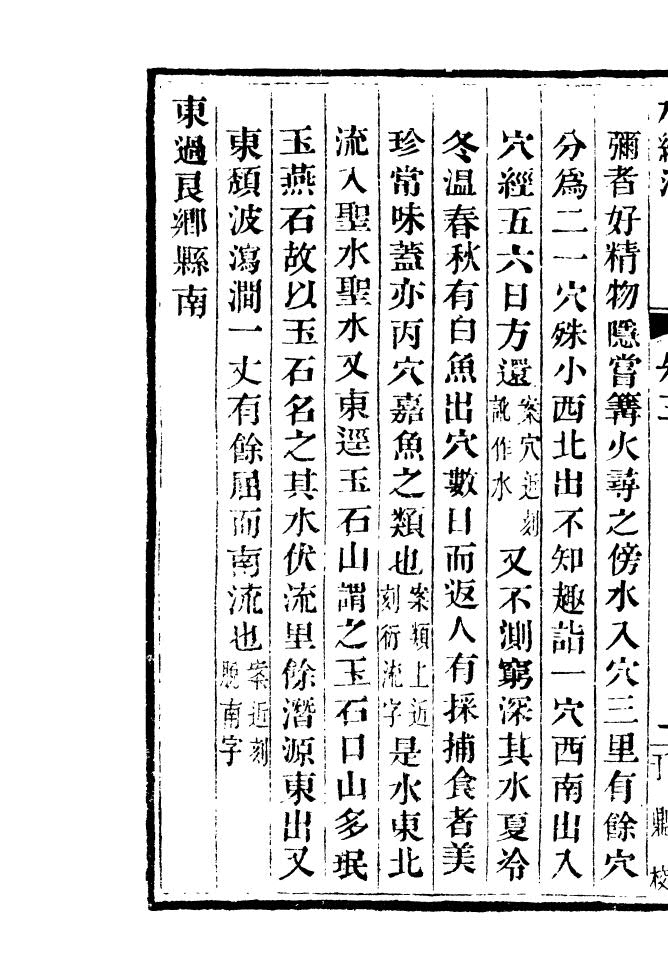 彌者好精物隱嘗篝火尋之傍水入穴三里有餘穴
分爲二一穴殊小西北出不知趣詣一穴西南出入
穴經五六日方還案穴近刻訛作水又不測窮深其水夏冷
冬溫春秋有白魚出穴數日而返人有採捕食者美
珍常味蓋亦丙穴嘉魚之類也案類上近刻衍流字是水東北
流入聖水聖水又東逕玉石山謂之玉石口山多珉
玉燕石故以玉石名之其水伏流里餘潛源東出又
東頹波瀉澗一丈有餘屈而南流也案近刻脫南字
東過良鄉縣南